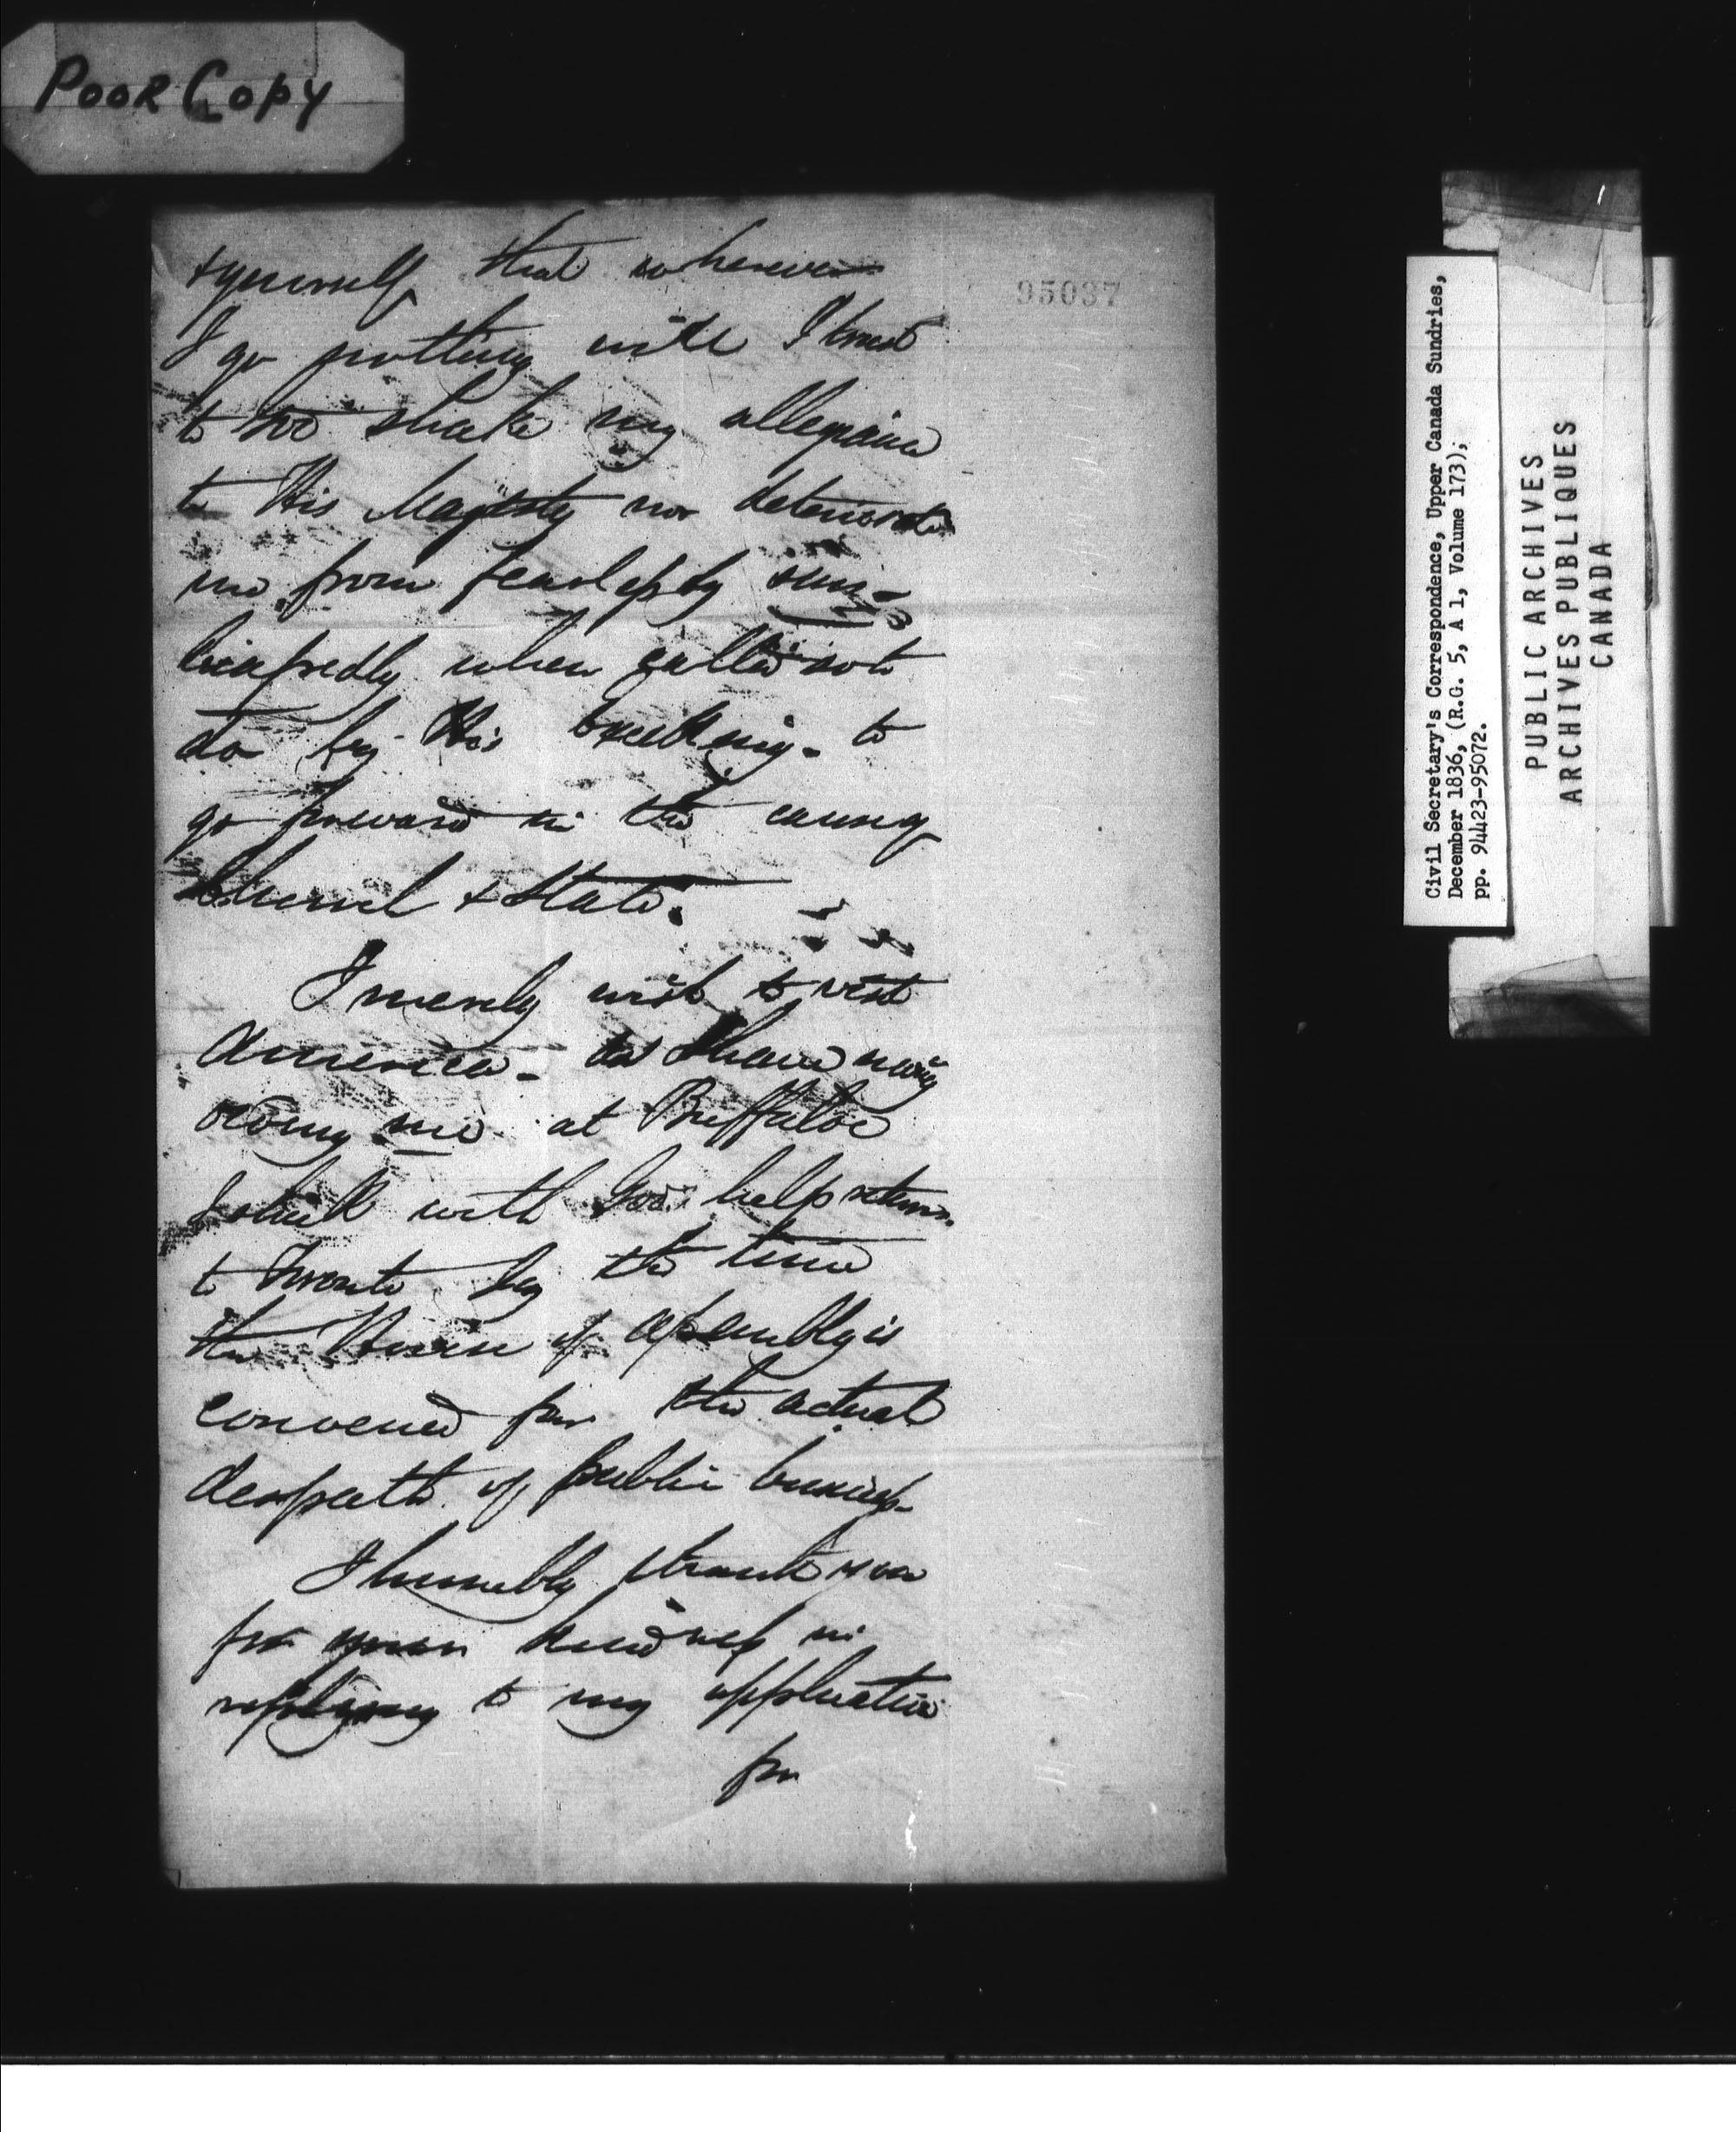 Poor Copy
95037
& yourself that wherever
I go nothing will I trust
to shake my allegiance
to His Majesty nor
me from fearlessly
when called
do by His to
go forward in the cause of
Church & State.
I merely wish to visit
America - as I have
owing me at Buffaloe
I shall with God's help return
to Toronto by the time
the House of Assembly is
convened for the actual
despatch of public business
I humbly thank you
for your kindness in
replying to my application
for
Civil Secretary's Correspondence, Upper Canada Sundries,
December 1836, (R.G. 5, A 1, Volume 173);
pp. 94423-95072.
PUBLIC ARCHIVES
ARCHIVES PUBLIQUES
CANADA